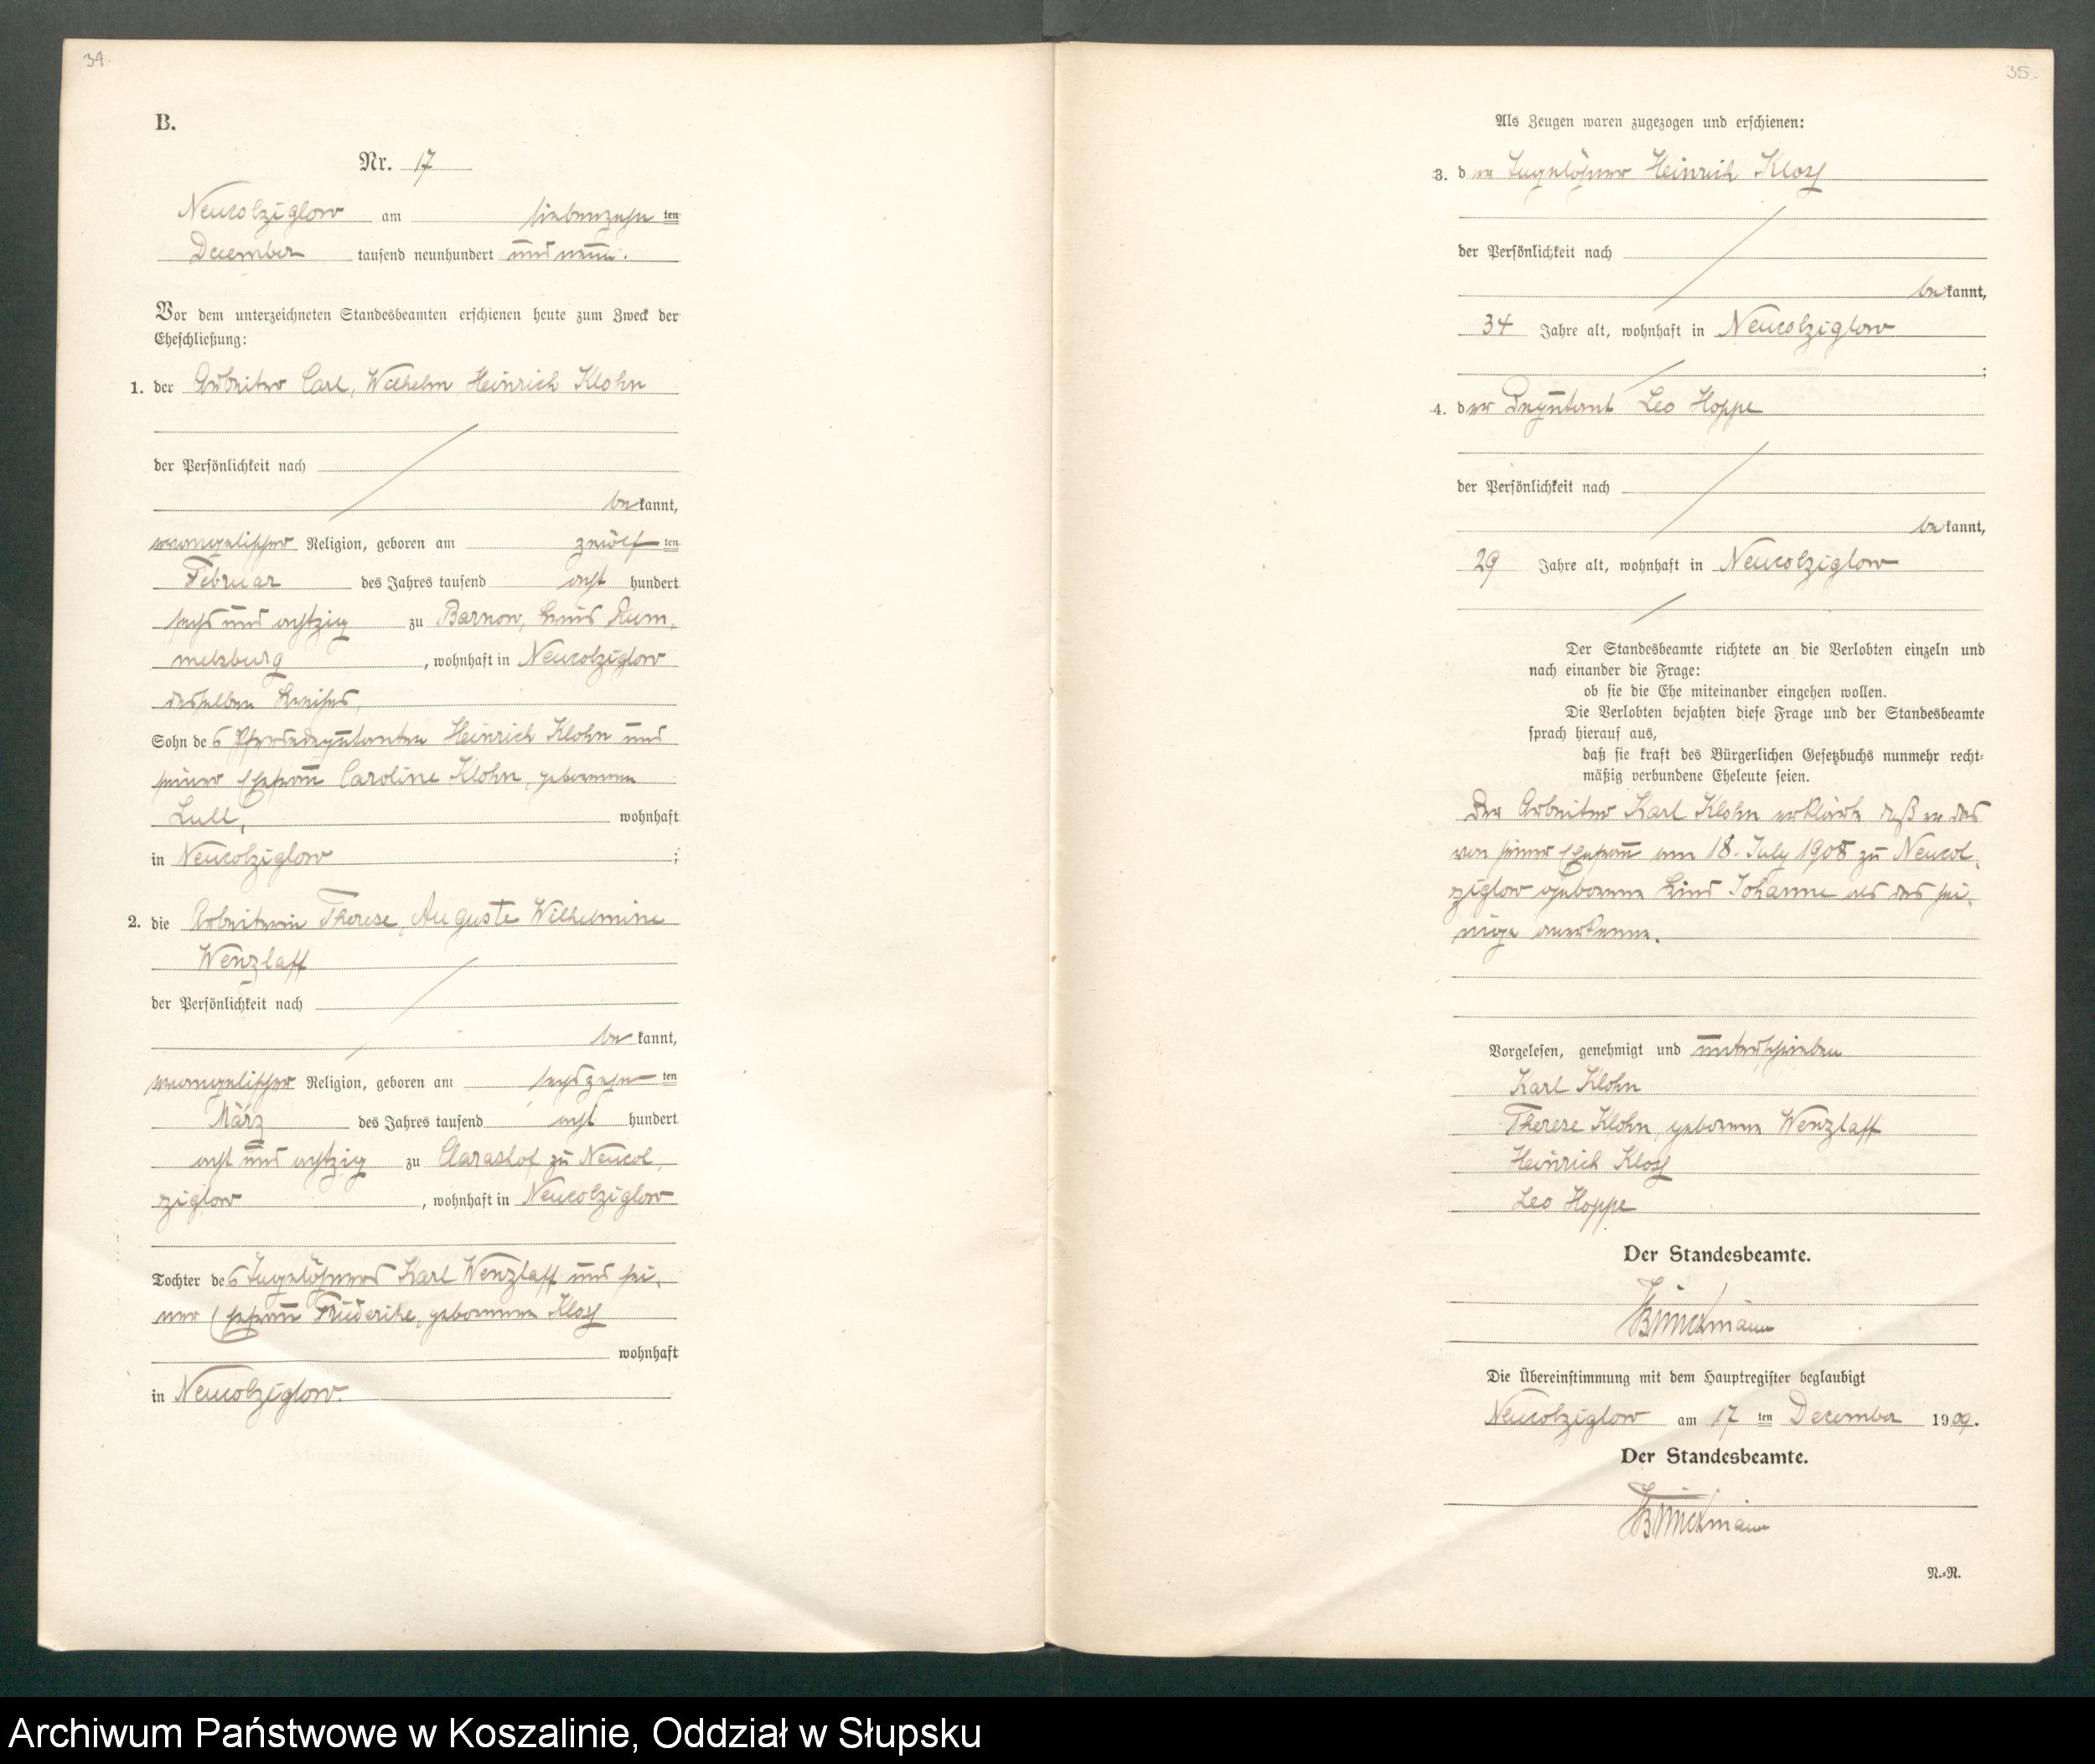 34.
B.
Nr. 17
Neucolziglow am siebenzehn ten
December tausend neunhundert und neun.
Vor dem unterzeichneten Standesbeamten erschienen heute zum Zweck der
Eheschließung:
1. der Arbeiter Carl, Wilhelm Heinrich Klohn
der Persönlichkeit nach
be kannt,
evangelischer Religion, geboren am zwölf ten
Februar des Jahres tausend acht hundert
sechs und achtzig zu Barnow, Kreis Rum,
melsburg, wohnhaft in Neucolziglow
desselben Kreises,
Sohn des Pferdedeputanten Heinrich Klohn und
seiner Ehefrau Caroline Klohn, geborenen
Lull, wohnhaft
in Neucolziglow;
2. die Arbeiterin Therese, Auguste Wilhelmine
Wenzlaff
der Persönlichkeit nach
be kannt,
evangelischer Religion, geboren am sechszehn ten
März des Jahres tausend acht hundert
acht und achtzig zu Clarashof zu Neucol,
ziglow, wohnhaft in Neucolziglow
Tochter des Tagelöhners Karl Wenzlaff und sei,
ner Ehefrau Friederike, geborenen Kloss
wohnhaft
in Neucolziglow.
35.
Als Zeugen waren zugezogen und erschienen:
3. der Tagelöhner Heinrich Kloss
der Persönlichkeit nach
be kannt,
34 Jahre alt, wohnhaft in Neucolziglow
;
4. der Deputant Leo Hoppe
der Persönlichkeit nach
be kannt,
29 Jahre alt, wohnhaft in Neucolziglow
Der Standesbeamte richtete an die Verlobten einzeln und
nach einander die Frage:
ob sie die Ehe miteinander eingehen wollen.
Die Verlobten bejahten diese Frage und der Standesbeamte
sprach hierauf aus,
daß sie kraft des Bürgerlichen Gesetzbuchs nunmehr recht-
mäßig verbundene Eheleute seien.
Der Arbeiter Karl Klohn erklärte daß er das
von seiner Ehefrau am 18. July 1908 zu Neucol,
ziglow geborene Kind Johanne als das sei,
nige anerkenne.
Vorgelesen, genehmigt und unterschrieben
Karl Klohn
Therese Klohn, geborene Wenzlaff
Heinrich Kloss
Leo Hoppe
Der Standesbeamte.
Brinckmann
Die Übereinstimmung mit dem Hauptregister beglaubigt
Neucolziglow am 17 ten December 1909.
Der Standesbeamte.
Brinckmann
N.-R.
Archiwum Państwowe w Koszalinie, Oddział w Słupsku